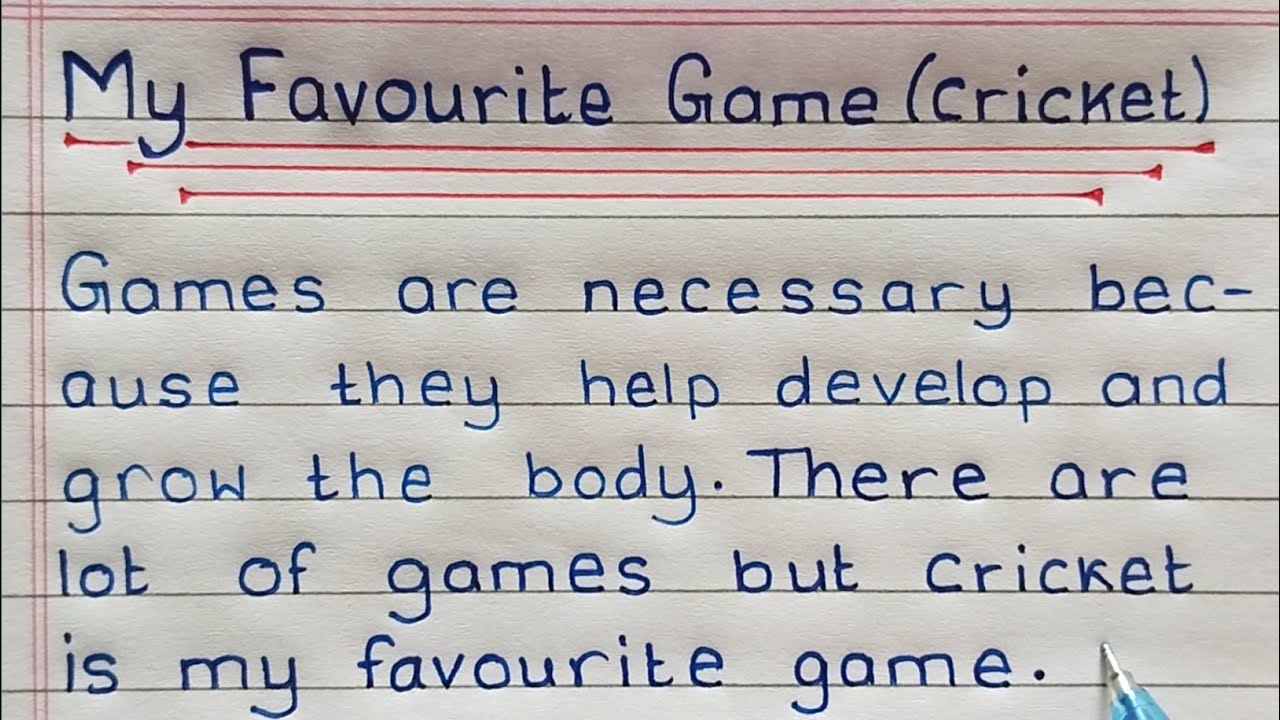 My Favourite Game (Cricket)
Games are necessary bec-
ause they help develop and
grow the body. There are
lot of games but cricket
is my favourite game.